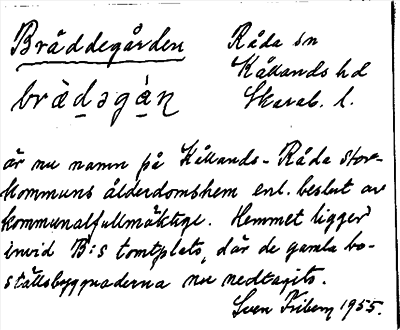 Bräddegården
Råda sn
Kållands hd
Skarab. l.
är nu namn på Kållands-Råda stor-
kommuns ålderdomshem enl. beslut av
kommunalfullmäktige. Hemmet ligger
invid B:s tomtplats, där de gamla bo-
ställsbyggnaderna nu nedtagits.
Sven Friberg 1955.